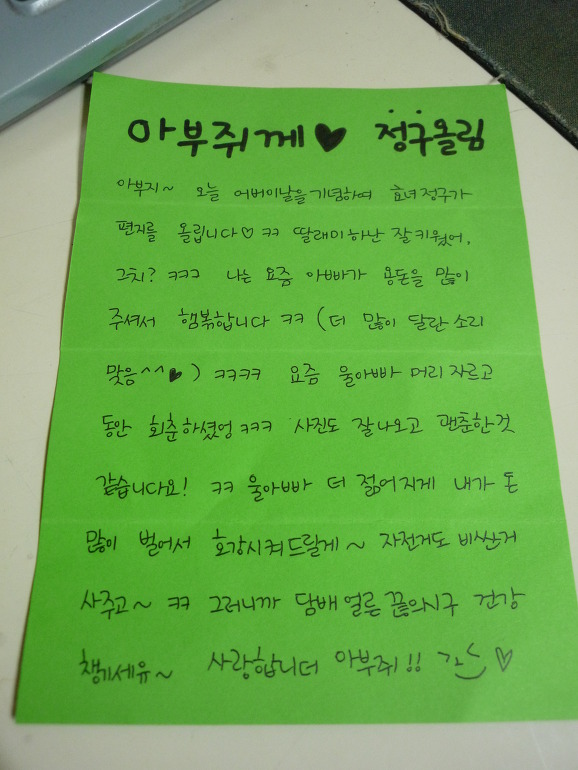 아부쥐께♥ 정구올림
아부지~ 오늘 어버이날을 기념하여 효녀정구가
편지를 올립니다♡ ㅋㅋ 딸래미하난 잘키웠어,
그치? ㅋㅋㅋ 나는 요즘 아빠가 용돈을 많이
주셔서 행볶합니다 ㅋㅋ (더 많이 달란 소리
맞음^^♥) ㅋㅋㅋㅋ 요즘 울아빠 머리자르고
동안 회춘하셨엉 ㅋㅋㅋ 사진도 잘나오고 괜춘한것
같습니다요! ㅋㅋ 울아빠 더 젊어지게 내가 돈
많이 벌어서 호강시켜드랄게~ 자전거도 비싼거
사주고~ ㅋㅋ 그러니까 담배얼른 끊의시구 건강
챙기세유~ 사랑합니더 아부쥐!! ♡